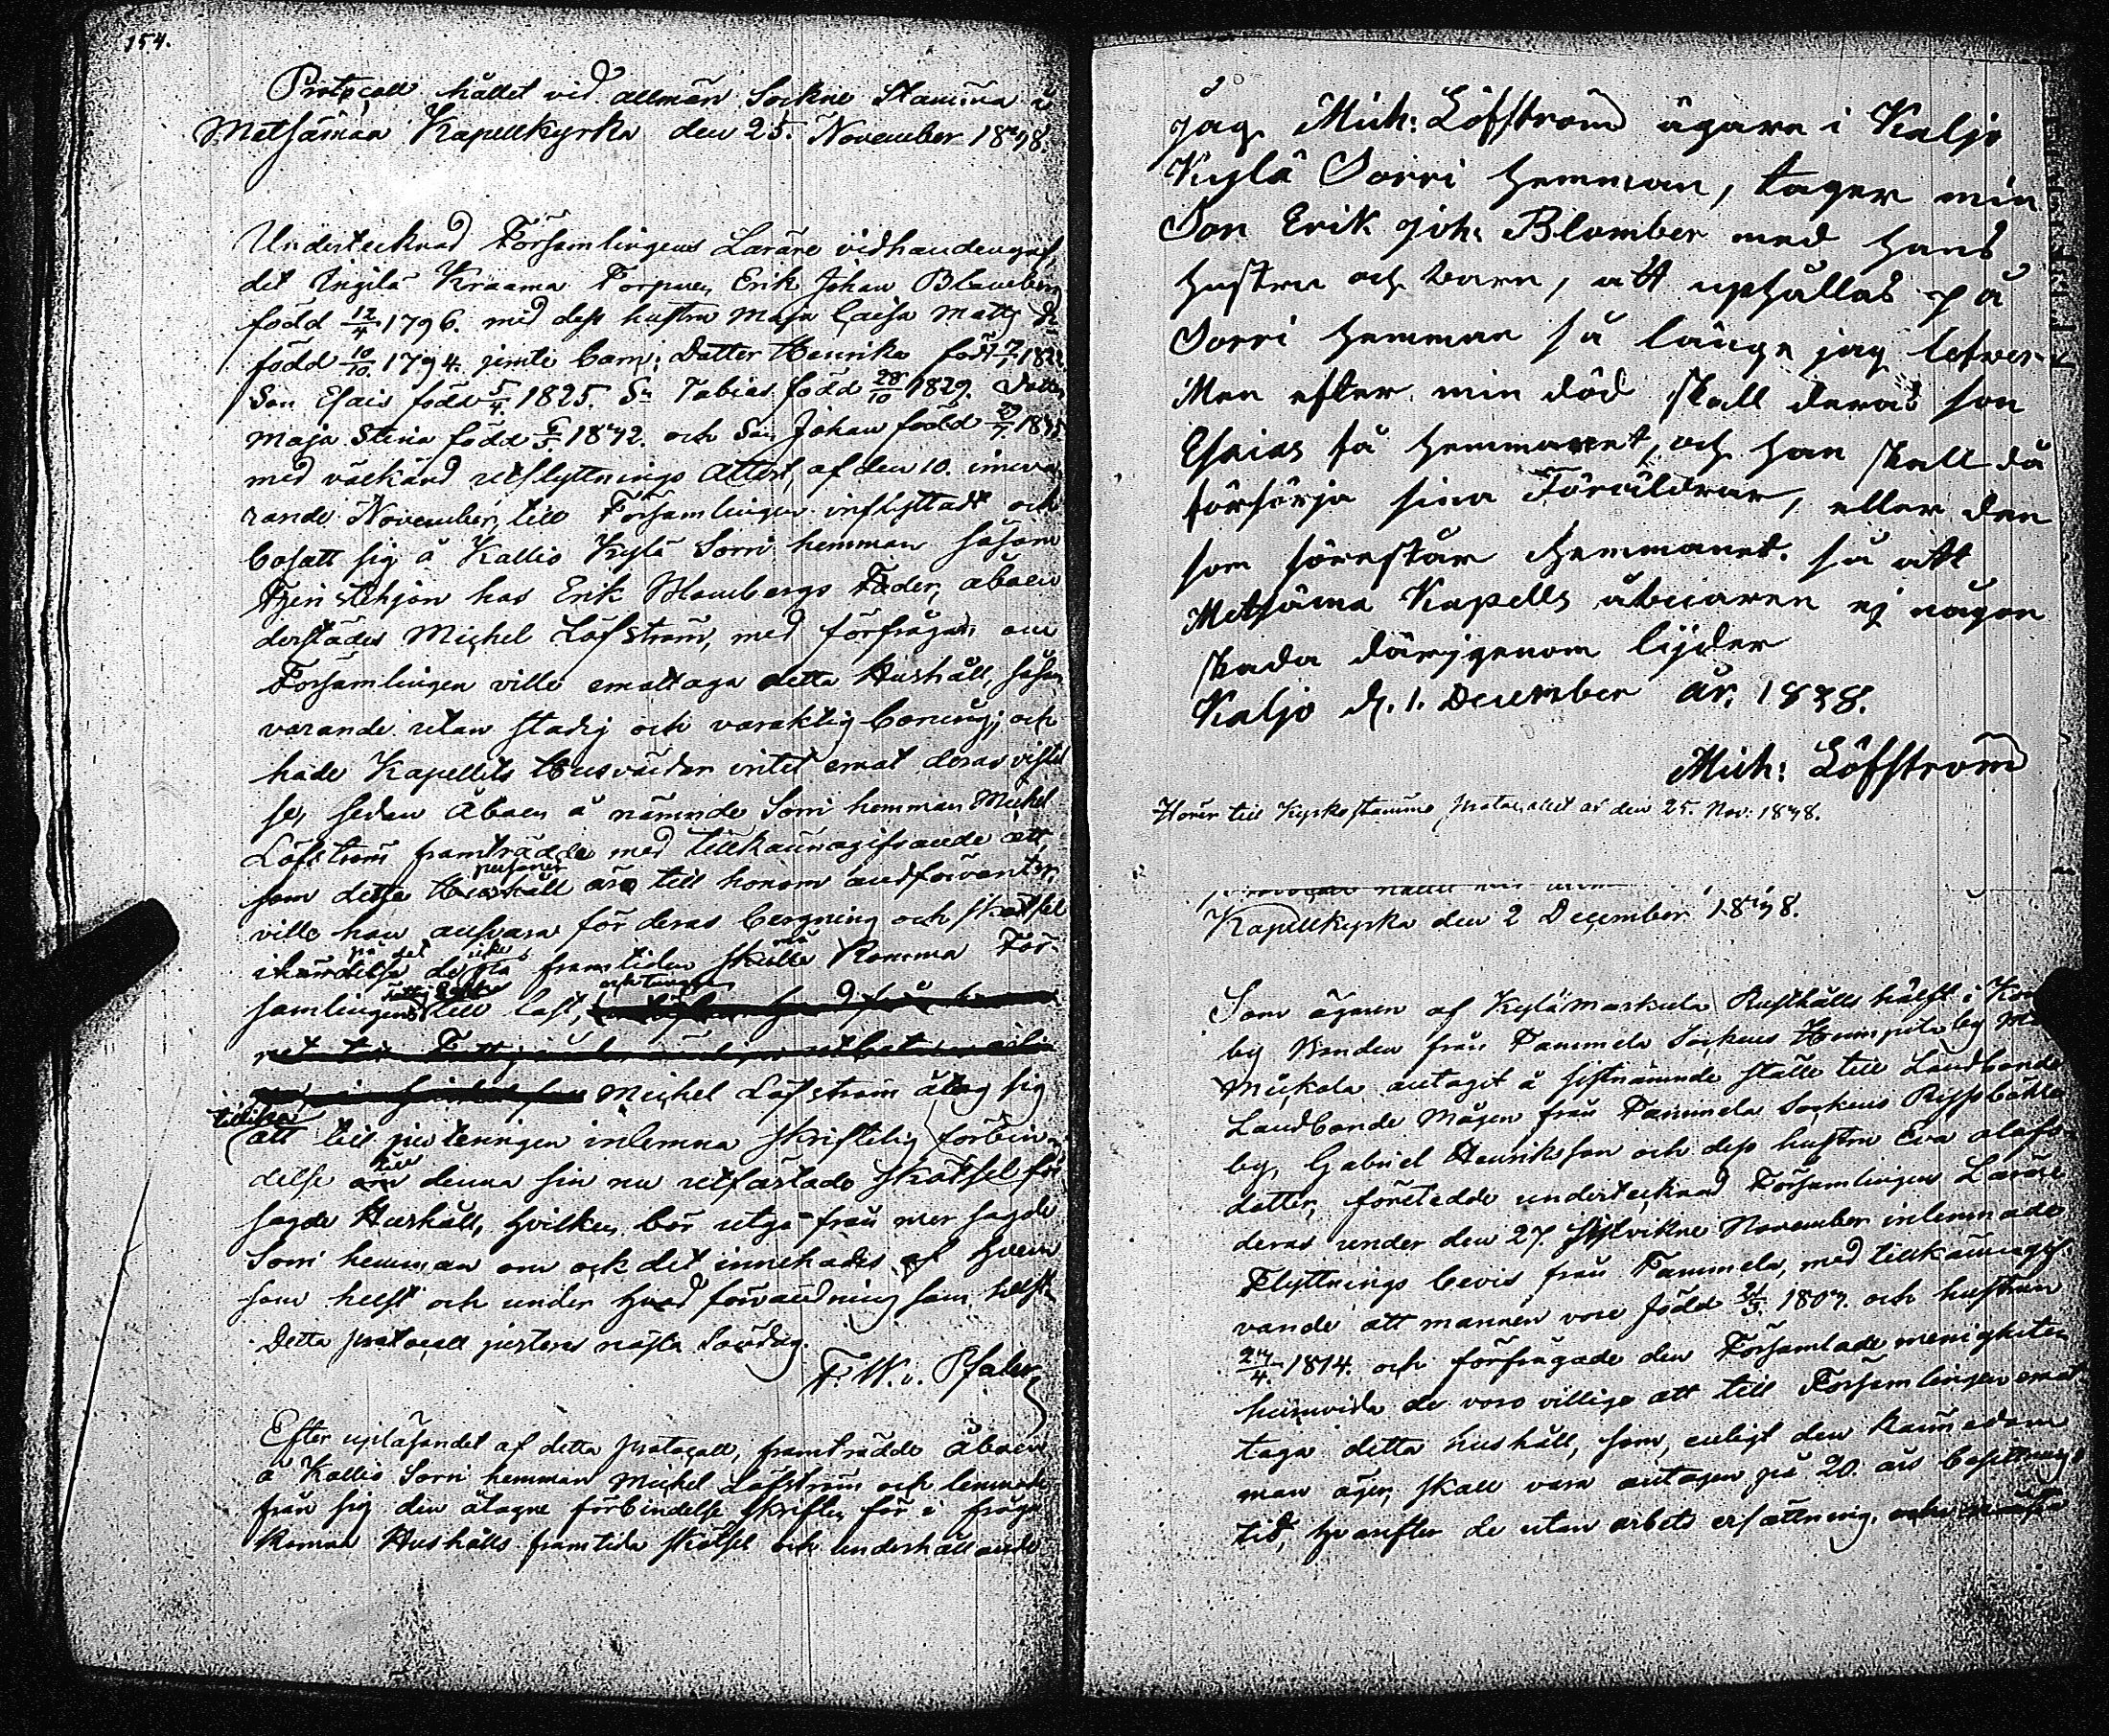 154.
Protocoll hållet vid allmän Sockne Stämma i
Metsämaa Kapellkyrka den 25. November 1838.
Undertecknad Församlingens Lärare vidhandengaf,
det Ingilä Kraama Torparen Erik Johan Blomberg
född 12/4 1796. med dess hustru Maja Caisa Matts Dr
född 10/10 1794. jemte barn: Dotter Henrika född
Son Esais född 5/4 1825. Sn Tobias född 28/10 1829. Dotter
Maja Stina född 6/5 1832. och Son Johan född 29/7 1835
med välkänd utflyttnings Attest, af den 10. inneva-
rande November, till Församlingen inflyttadt och
bosatt sig å Kallio Kylä Sorri hemman såsom
hos Erik Blombergs Fader, åboen
derstädes Michel Löfström, med förfrågan om
Församlingen ville emottaga detta Hushåll, såsom
varande utan stadig och varaktig boning; och
hade Kapellets Husvärdar intet emot deras vistel
se, sedan Åboen å nämnde Sorri hemman Michel
Löfström framträdde med tillkännagifvande att,
som dessa personer äro till honom andförvanter,
ville han ansvara för deras bergning och skötsel
på det icke må
i händelse de framtiden skulle komma För-
samlingens till last, och tunga
Michel Löfström åtog sig
tillika
att till justeringen inlemna skriftelig förbin-
delse till denna sin nu utfästade skötsel för
sagde Hushåll, hvilken bör utgå från mer sagde
Sorri hemman om ock det innehades af hvem
som helst och under hvad förvandning som helst.
Detta protocoll justeras nästa Söndag.
F. W. v. Pfaler
Efter upläsandet af detta protocoll, framträdde Åboen
å Kallio Sorri hemman Michel Löfström och lemnade
från sig den åtagne förbindelse skriften för i fråga
komne Hushålls framtida skötsel och underhållande
Jag Mich: Löfström ägare i Kaljo
Kylä Sorri Hemman, tager min
Son Erik Joh: Blomber med hans
hustru och barn, att uphållas på
Sorri Hemman så länge jag lefver
Men efter min död skall deras son
Esaias få hemmanet, och han skall då
försörja sina Föräldrar, eller den
som förestår Hemmanet. så att
Metsäma Kapells åbuaren ej någon
skada därigenom lijder
Kaljo d. 1. December år. 1838.
Mich: Löfström
Hörer till Kyrkostämmo protocollet af den 25. Nov: 1838.
Kapellkyrka den 2 December 1838.
Som ägaren af Kylä Markula Rusthålls hälft i
by Bonden från Tammela Sockens Humppila by
Mickola antagit å sistnämnde ställe till Landbonde
Landbonde Mågen från Tammela Sockens
by, Gabriel Henriksson och dess hustru Eva Olofs-
dotter, företedde undertecknad Församlingens Lärare
deras under den 27 November inlemnade
Flyttnings bevis från Tammela, med tillkännagif-
vande att mannen vore född 1807. och hustrun
24/4 1814. och förfrågade den Församlade menigheten
huruvida de voro villige att till Församlingen emot
taga detta hushåll, som, enligt den kännedom
man äger, skall vara antagen på 20. års besittnings
tid, hvarefter de utan arbets ersättning,